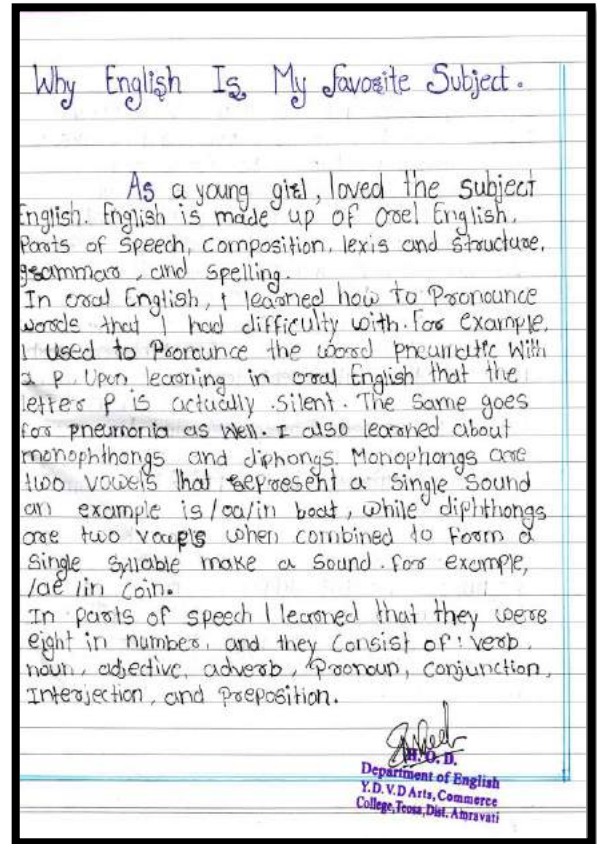 Why English Is My favorite Subject.
As a young girl, loved the subject
English. English is made up of Orel English,
Parts of Speech, Composition, lexis and Structure,
grammar, and Spelling.
In oral English, I learned how to Pronounce
words that I had difficulty with. for example,
I used to Pronounce the word pneumatic With
a P. Upon learning in oral English that the
letter P is actually silent. The Same goes
for pneumonia as Well. I also learned about
monophthongs and diphongs. Monophongs are
two vowels that represent a Single Sound
an example is /oa/in boat, while diphthongs
are two vowels when combined to Form a
Single Syllable make a Sound. for example,
/ae /in Coin.
In parts of speech I learned that they were
eight in number, and they Consist of: verb,
noun, adjective, adverb, Pronoun, Conjunction,
Interjection, and Preposition.
H. O. D.
Department of English
Y. D. V. D Arts, Commerce
College, Teosa, Dist. Amravati